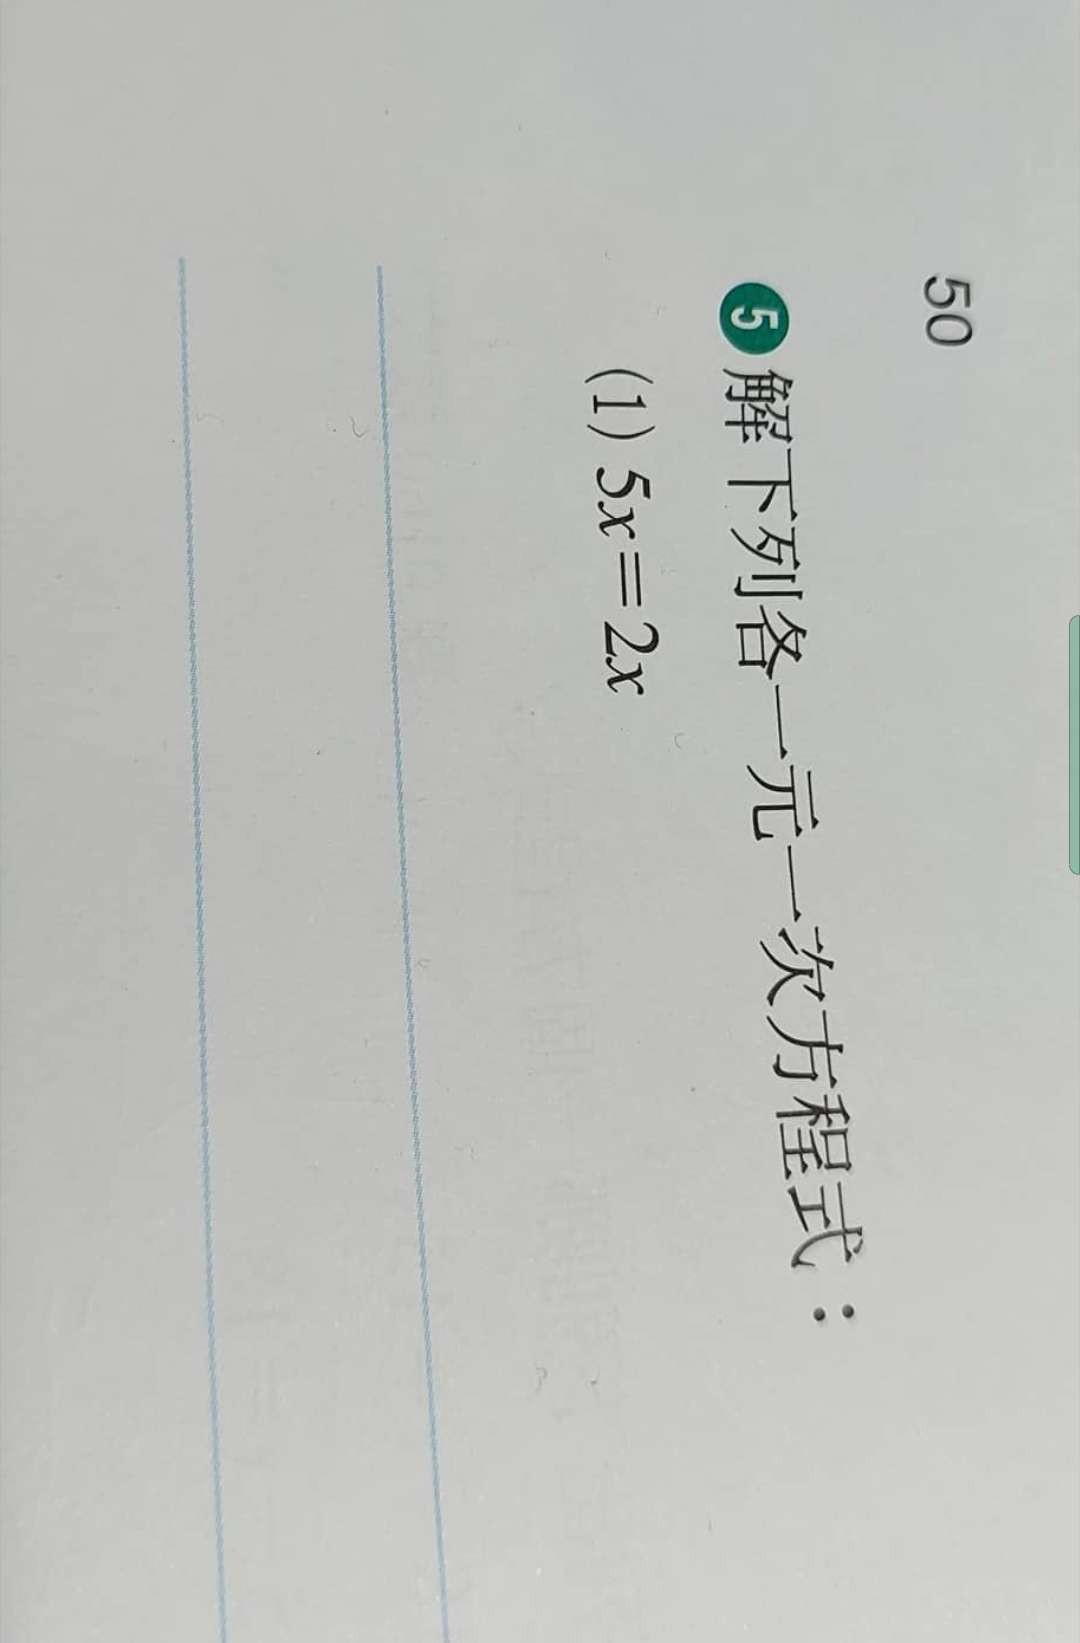 50
5 解下列各一元一次方程式：
(1) 5x=2x